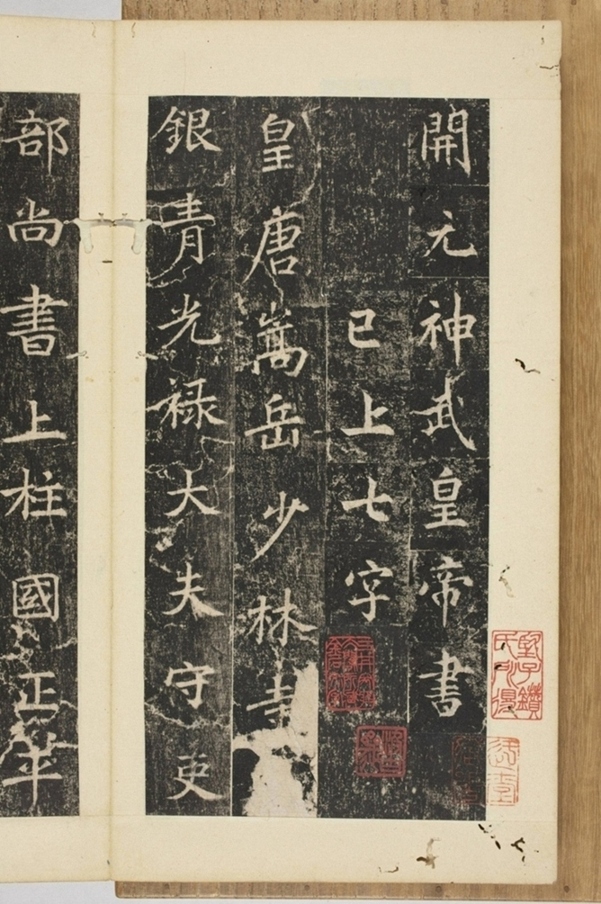 開元神武皇帝書
已上七字
皇唐嵩岳少林寺
銀青光禄大夫守吏
部尚書上柱國正平